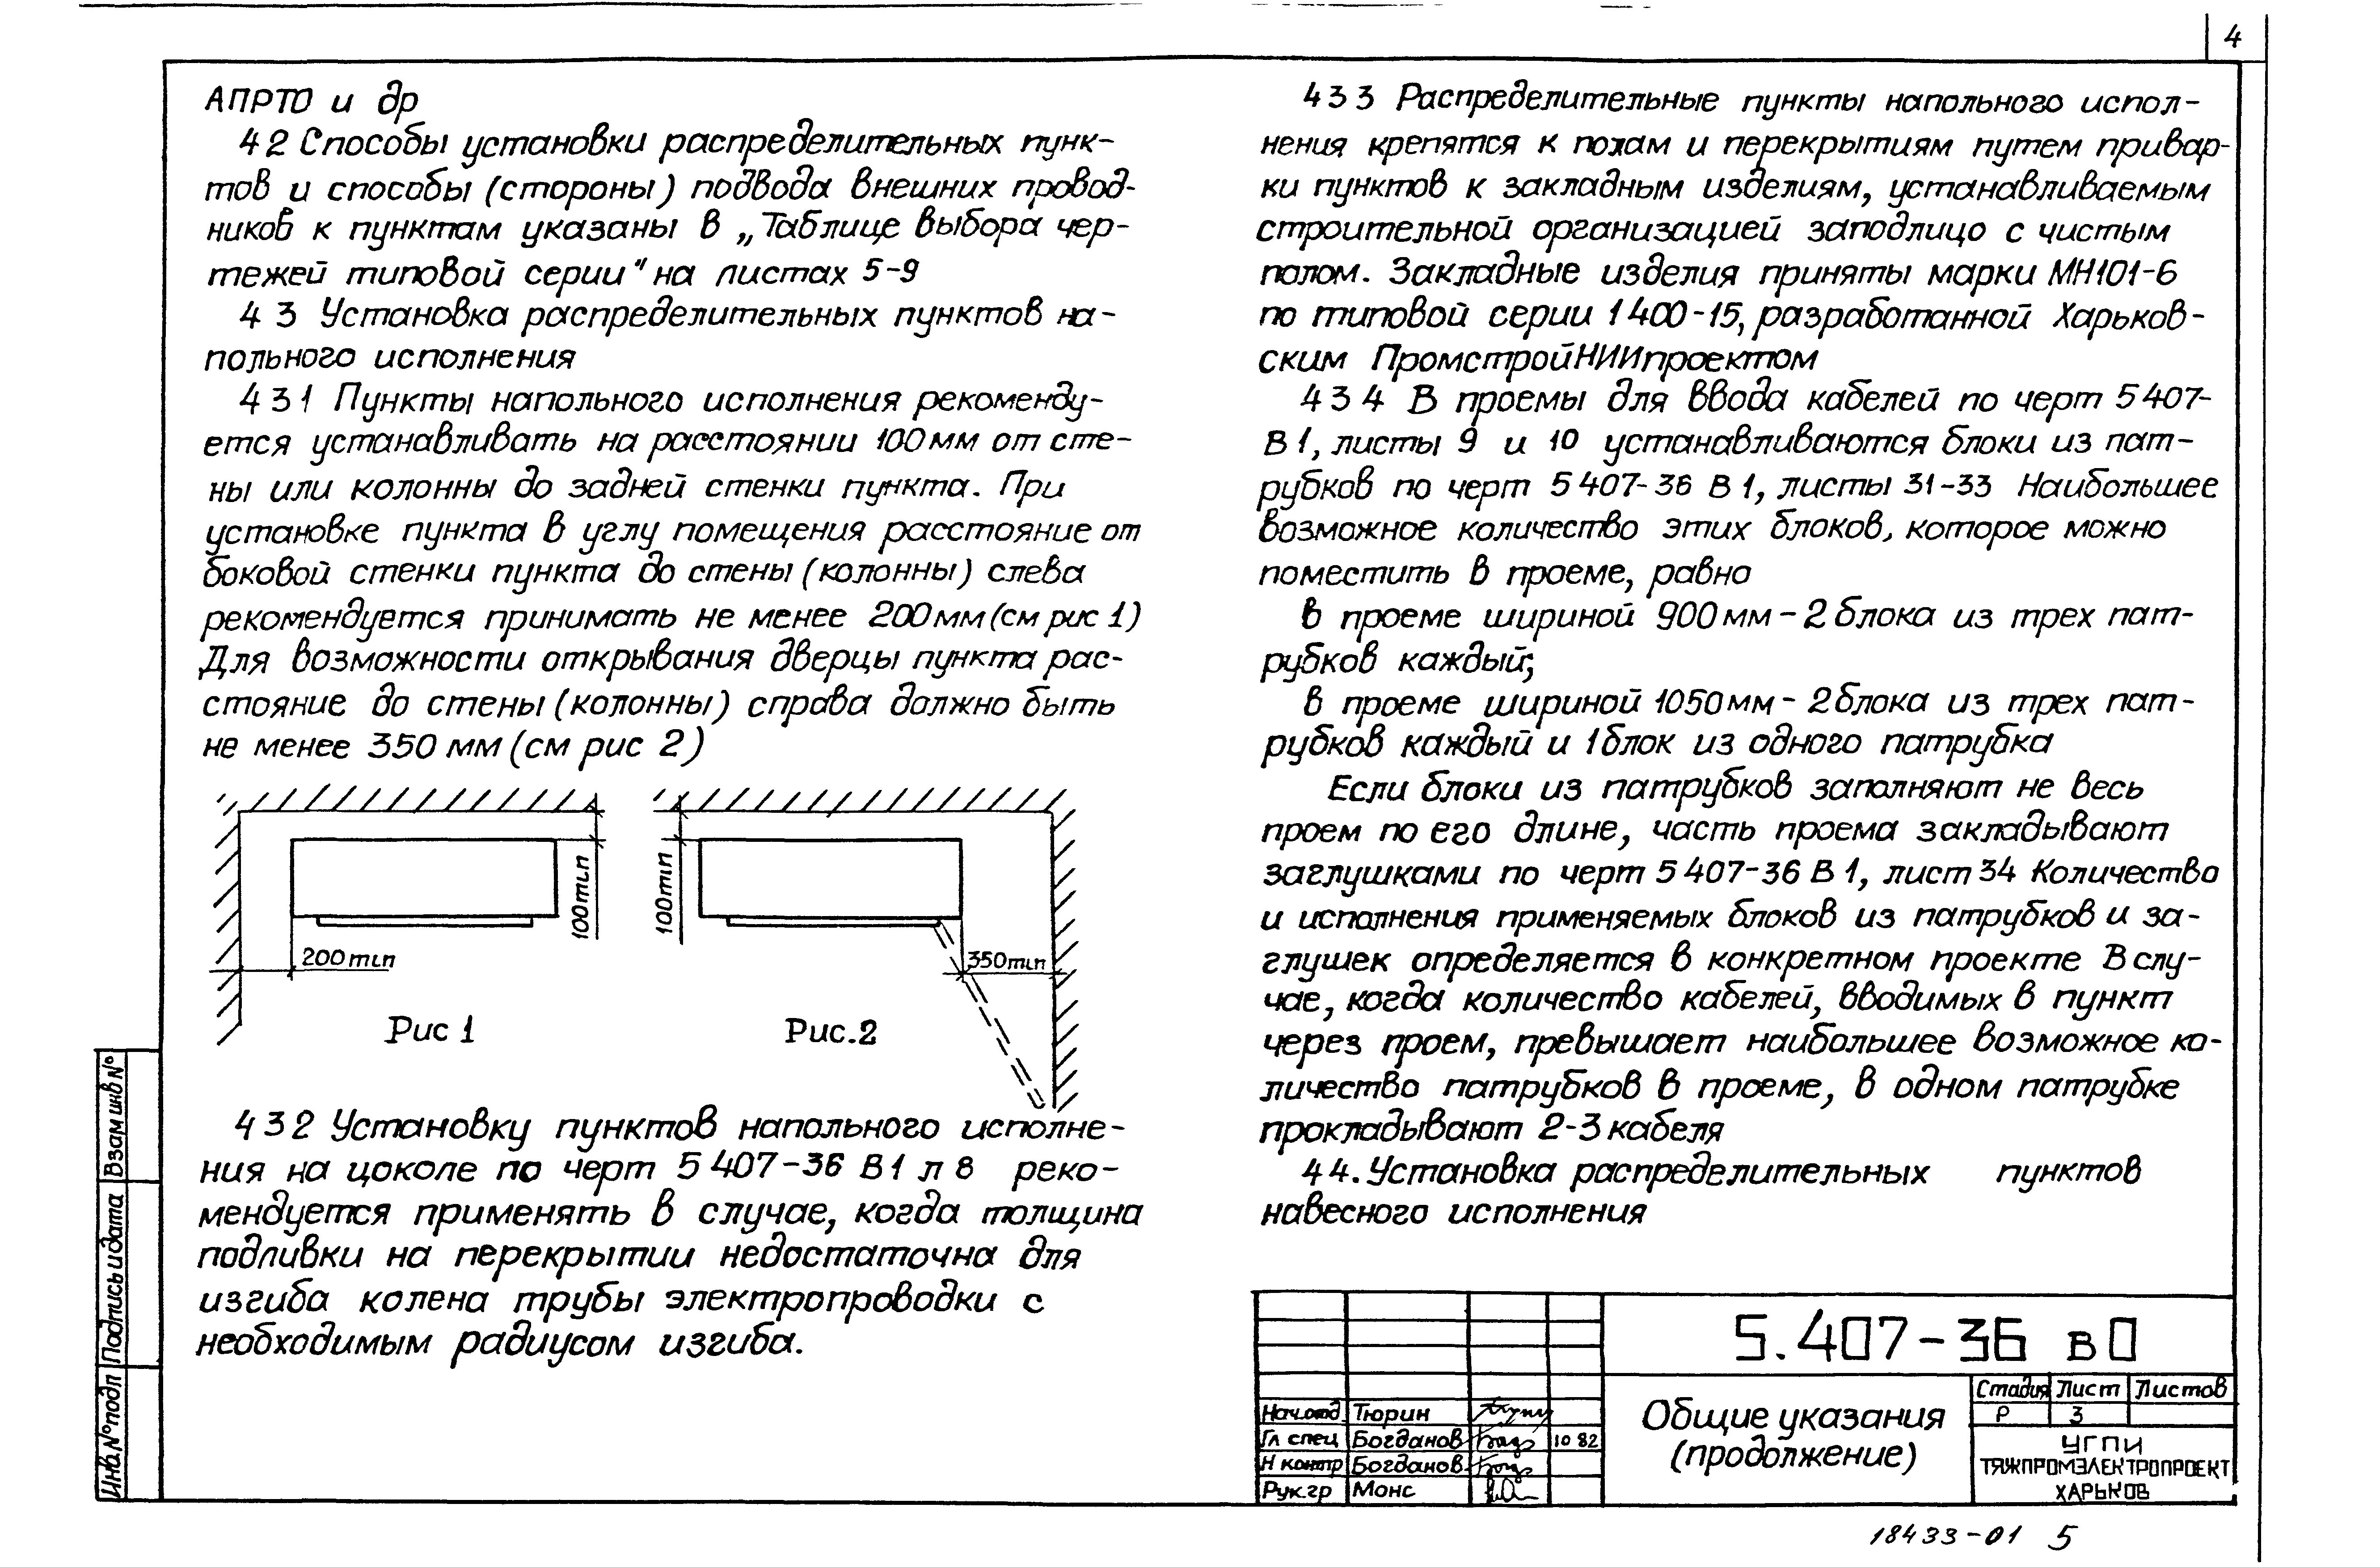 4
АПРТО и др
4 2 Способы установки распределительных пунк-
тов и способы (стороны) подвода внешних провод-
ников к пунктам указаны в „Таблице выбора чер-
тежей типовой серии" на листах 5-9
4 3 Установка распределительных пунктов на-
польного исполнения
4 3 1 Пункты напольного исполнения рекоменду-
ется устанавливать на расстоянии 100 мм от сте-
ны или колонны до задней стенки пункта. При
установке пункта в углу помещения расстояние от
боковой стенки пункта до стены (колонны) слева
рекомендуется принимать не менее 200 мм (см рис 1)
Для возможности открывания дверцы пункта рас-
стояние до стены (колонны) справа должно быть
не менее 350 мм (см рис 2)
100 min
200 min
Рис 1
100 min
350 min
Рис. 2
4 3 2 Установку пунктов напольного исполне-
ния на цоколе по черт 5 407-36 В1 л 8 реко-
мендуется применять в случае, когда толщина
подливки на перекрытии недостаточна для
изгиба колена трубы электропроводки с
необходимым радиусом изгиба.
4 3 3 Распределительные пункты напольного испол-
нения крепятся к полам и перекрытиям путем привар-
ки пунктов к закладным изделиям, устанавливаемым
строительной организацией заподлицо с чистым
полом. Закладные изделия приняты марки МН101-6
по типовой серии 1 400-15, разработанной Харьков-
ским ПромстройНИИпроектом
4 3 4 В проемы для ввода кабелей по черт 5 407-
В 1, листы 9 и 10 устанавливаются блоки из пат-
рубков по черт 5 407-36 В 1, листы 31-33 Наибольшее
возможное количество этих блоков, которое можно
поместить в проеме, равно
в проеме шириной 900 мм - 2 блока из трех пат-
рубков каждый;
в проеме шириной 1050 мм - 2 блока из трех пат-
рубков каждый и 1 блок из одного патрубка
Если блоки из патрубков заполняют не весь
проем по его длине, часть проема закладывают
заглушками по черт 5 407-36 В 1, лист 34 Количество
и исполнения применяемых блоков из патрубков и за-
глушек определяется в конкретном проекте В слу-
чае, когда количество кабелей, вводимых в пункт
через проем, превышает наибольшее возможное ко-
личество патрубков в проеме, в одном патрубке
прокладывают 2-3 кабеля
4 4. Установка распределительных пунктов
навесного исполнения
Взам инв №
Подпись и дата
Инв. № подл
5.407-36 в0
Нач.отд Тюрин
Гл спец Богданов 10 82
Н контр Богданов
Рук.гр Монс
Общие указания
(продолжение)
Стадия Лист Листов
Р 3
УГПИ
ТЯЖПРОМЭЛЕКТРОПРОЕКТ
ХАРЬКОВ
18433-01 5